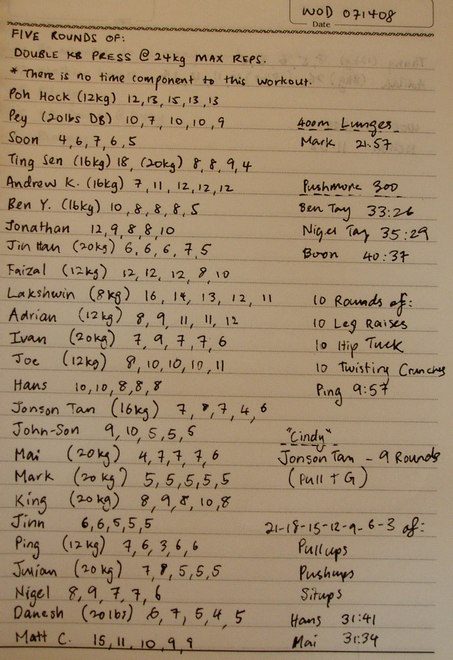 WOD 071408
Date
FIVE ROUNDS OF:
DOUBLE KB PRESS @ 24kg MAX REPS.
* There is no time component to this workout.
Poh Hock (12kg) 12, 13, 15, 13, 13
Pey (20lbs DB) 10, 7, 10, 10, 9
Soon 4, 6, 7, 6, 5
Ting Sen (16kg) 18, (20kg) 8, 8, 9, 4
Andrew K. (16kg) 7, 11, 12, 12, 12
Ben Y. (16kg) 10, 8, 8, 8, 5
Jonathan 12, 9, 8, 8, 10
Jin Han (20kg) 6, 6, 6, 7, 5
Faizal (12kg) 12, 12, 12, 8, 10
Lakshwin (8kg) 16, 14, 13, 12, 11
Adrian (12kg) 8, 9, 11, 11, 12
Ivan (20kg) 7, 9, 7, 7, 6
Joe (12kg) 8, 10, 10, 10, 11
Hans 10, 10, 8, 8, 8
Jonson Tan (16kg) 7, 8, 7, 4, 6
John-Son 9, 10, 5, 5, 6
Mai (20kg) 4, 7, 7, 7, 6
Mark (20kg) 5, 5, 5, 5, 5
King (20kg) 8, 9, 8, 10, 8
Jinn 6, 6, 5, 5, 5
Ping (12kg) 7, 6, 3, 6, 6
Juuian (20kg) 7, 8, 5, 5, 5
Nigel 8, 9, 7, 7, 6
Danesh (20lbs) 6, 7, 5, 4, 5
Matt C. 15, 11, 10, 9, 9
400m Lunges
Mark 21:57
Pushmore 300
Ben Tay 33:26
Nigel Tay 35:29
Boon 40:37
10 Rounds of:
10 Leg Raises
10 Hip Tuck
10 Twisting Crunches
Ping 9:57
"Cindy"
Jonson Tan - 9 Rounds
(Pull + G)
21-18-15-12-9-6-3 of:
Pullups
Pushups
Situps
Hans 31:41
Mai 31:34